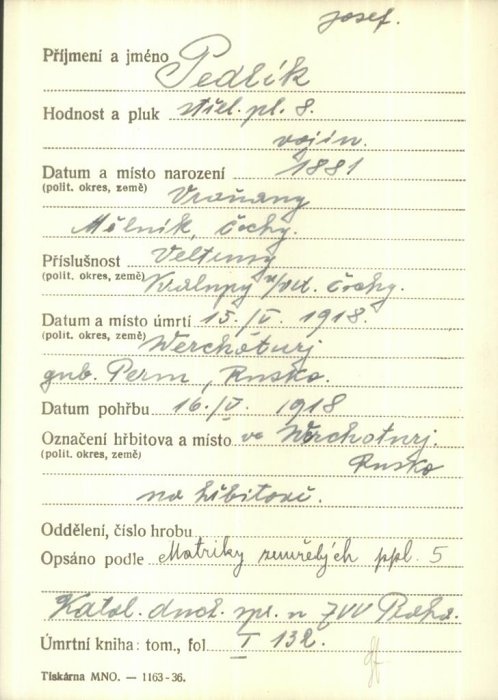 Josef.
Příjmení a jméno Pedlík
Hodnost a pluk střel. pl. 8.
vojín.
Datum a místo narození 1881
(polit. okres, země) Vraňany
Mělník, Čechy.
Příslušnost Veltrusy
(polit. okres, země) Kralupy n/Vlt. Čechy.
Datum a místo úmrtí 15./V. 1918.
(polit. okres, země) Werchoturj
gub. Perm, Rusko.
Datum pohřbu 16./V. 1918
Označení hřbitova a místo ve Werchoturj.
(polit. okres, země) Rusko
na hřbitově.
Oddělení, číslo hrobu
Opsáno podle Matriky zemřelých ppl. 5
Katol. duch. spr. u ZVV Praha.
Úmrtní kniha: tom., fol I 132.
Tiskárna MNO. — 1163-36.